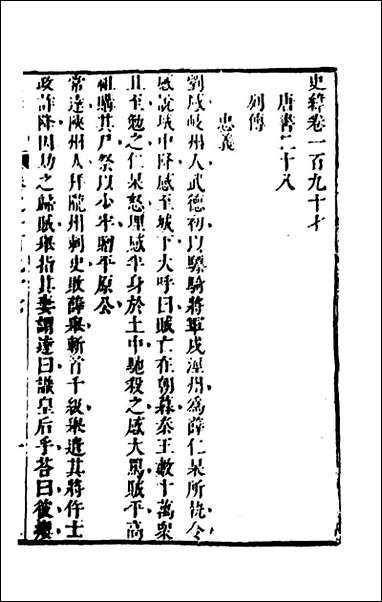 史緯卷一百九十才
唐書二十八
列傳
忠義
劉感岐州人武德初以驃騎將軍戍涇州爲薛仁杲所執令
感說城中降感至城下大呼曰賊亡在朝暮秦王數十萬衆
且至勉之仁杲怒埋感半身於土中馳殺之感大罵賊平高
祖購其尸祭以少牢贈平原公
常達陝州人拜隴州刺史敗薛舉斬首千級舉遣其將仵士
政詐降因劫之歸賊舉指其妻謂達曰識皇后乎荅曰彼癭